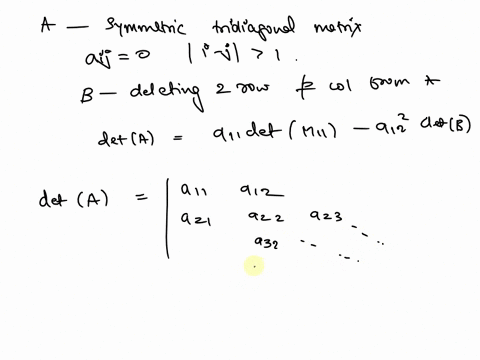 A — Symmetric tridiagonal matrix
aij = 0 |i-j| > 1.
B — deleting 2 row & col from A
det(A) = a11 det(M11) - a12² det(B)
det(A) = | a11 a12
a21 a22 a23 ...
a32 ... ...